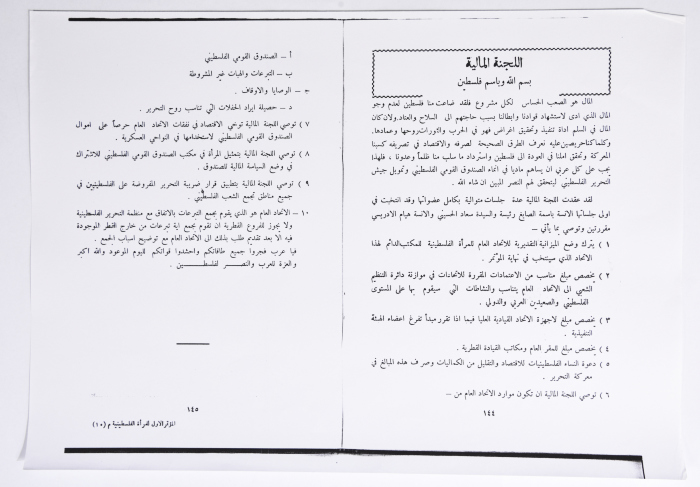 اللجنة المالية
بسم الله وباسم فلسطين
المال هو الصعب الحساس لكل مشروع فلقد ضاعت منا فلسطين لعدم وجو
المال الذي ادى لاستشهاد قوادنا وابطالنا بسبب حاجتهم الى السلاح والعتاد ولان كان
المال في السلم اداة تنفيذ وتحقيق اغراض فهو في الحرب والثورات روحها وعمادها.
وكلما كنا حريصين عليه نعرف الطرق الصحيحة لصرفه والاقتصاد في تصريفه كسبنا
المعركة وتحقق املنا في العودة الى فلسطين واسترداد ما سلب منا ظلماً وعدوناً ، فلهذا
يجب على كل عربي ان يساهم ماديا في انماء الصندوق القومي الفلسطيني وتمويل جيش
التحرير الفلسطيني ليتحقق لهم النصر المبين ان شاء الله .
لقد عقدت اللجنة المالية عدة جلسات متوالية بكامل عضواتها وقد انتخبت في
اولى جلساتها الآنسة باسمة الصايغ رئيسة والسيدة سعاد الحسيني والآنسة هيام الادريسي
مقررتين وتوصي بما يأتي –
١ ) يترك وضع الميزانية التقديرية للاتحاد العام للمرأة الفلسطينية للمكتب الدائم لهذا
الاتحاد الذي سينتخب في نهاية المؤتمر .
٢ ) يخصص مبلغ مناسب من الاعتمادات المقررة للاتحادات في موازنة دائرة التنظيم
الشعبي الى الاتحاد العام يتناسب والنشاطات التي سيقوم بها على المستوى
الفلسطيني والصعيدين العربي والدولي .
٣ ) يخصص مبلغ لاجهزة الاتحاد القيادية العليا فيما اذا تقرر مبدأ تفرغ اعضاء الهيئة
التنفيذية .
٤ ) يخصص مبلغ للمقر العام ومكاتب القيادة القطرية .
٥ ) دعوة النساء الفلسطينيات للاقتصاد والتقليل من الكماليات وصرف هذه المبالغ في
معركة التحرير .
٦ ) توصي اللجنة المالية ان تكون موارد الاتحاد العام من –
١٤٤
أ – الصندوق القومي الفلسطيني
ب – التبرعات والهبات غير المشروطة
ج – الوصايا والاوقاف .
د – حصيلة ايراد الحفلات التي تناسب روح التحرير .
٧ ) توصي اللجنة المالية توخي الاقتصاد في نفقات الاتحاد العام حرصاً على اموال
الصندوق القومي الفلسطيني لاستخدامها في النواحي العسكرية .
٨ ) توصي اللجنة المالية بتمثيل المرأة في مكتب الصندوق القومي الفلسطيني للاشتراك
في وضع السياسة المالية للصندوق .
٩ ) توصي اللجنة المالية بتطبيق قرار ضريبة التحرير المفروضة على الفلسطينيين في
جميع مناطق تجمع الشعب الفلسطيني .
١٠ – الاتحاد العام هو الذي يقوم بجمع التبرعات بالاتفاق مع منظمة التحرير الفلسطينية
ولا يجوز للفروع القطرية ان تقوم بجمع اية تبرعات من خارج القطر الموجودة
فيه الا بعد تقديم طلب بذلك الى الاتحاد العام مع توضيح اسباب الجمع .
فيا عرب فجروا جميع طاقاتكم واحشدوا قواتكم لليوم الموعود والله اكبر
والعزة للعرب والنصر لفلسطين .
١٤٥
المؤتمر الاول للمرأة الفلسطينية م (١٠)